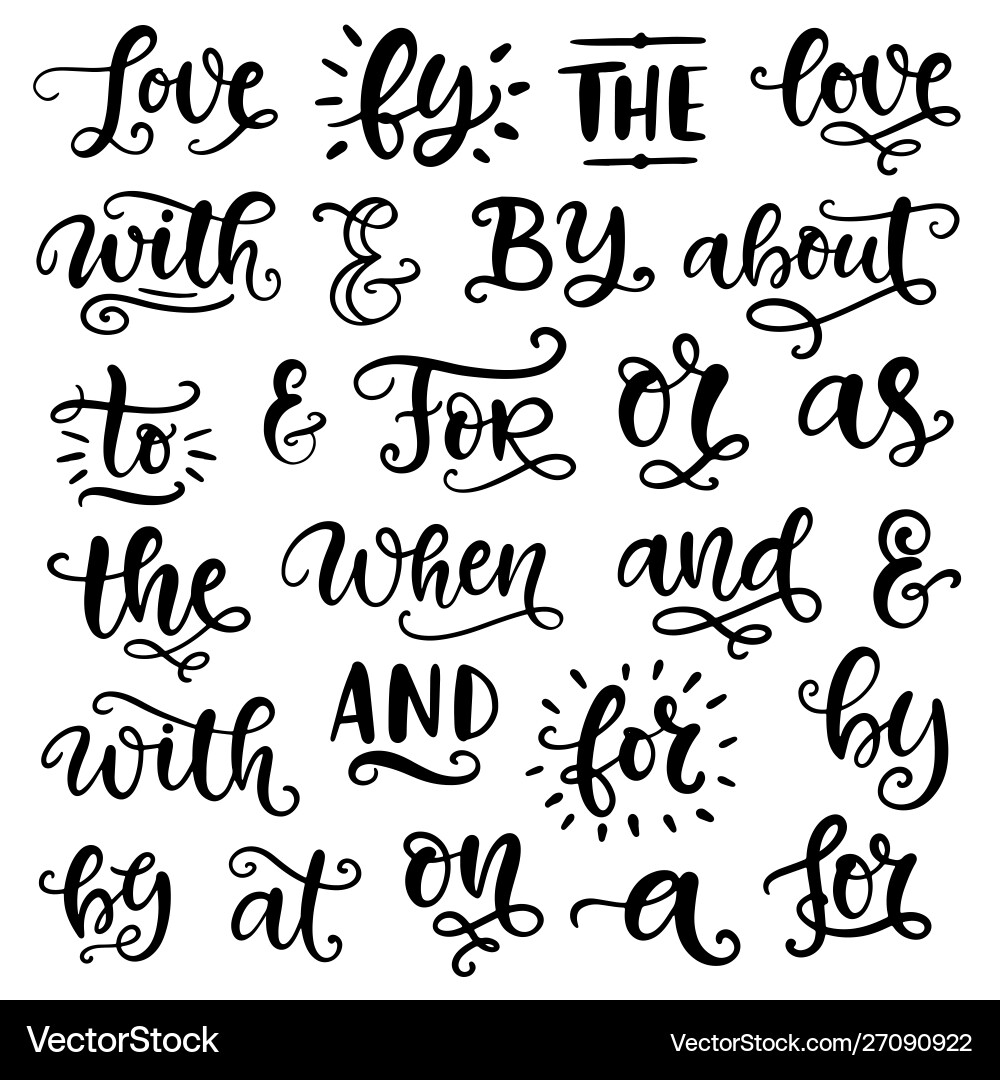 Love by THE love
with & By about
to & For or as
the When and &
with AND for by
by at on a for
VectorStock® VectorStock.com/27090922